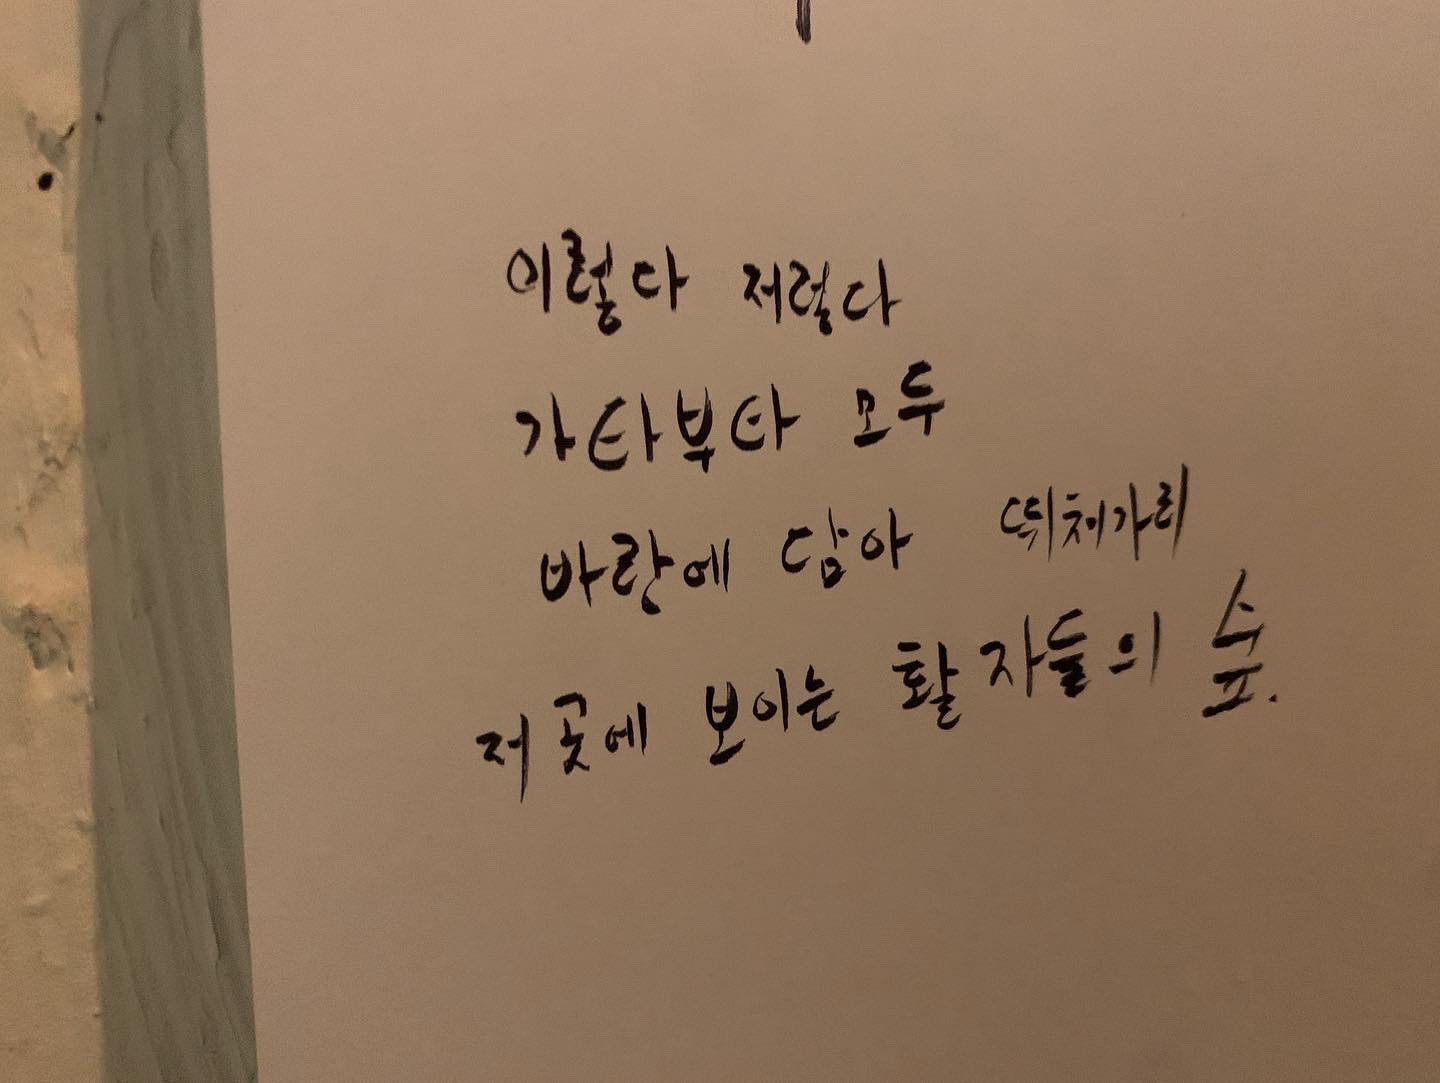 이렇다 저렇다
가타부타 모두
바랑에 담아 뛰쳐가리
저 곳에 보이는 활자들의 숲.